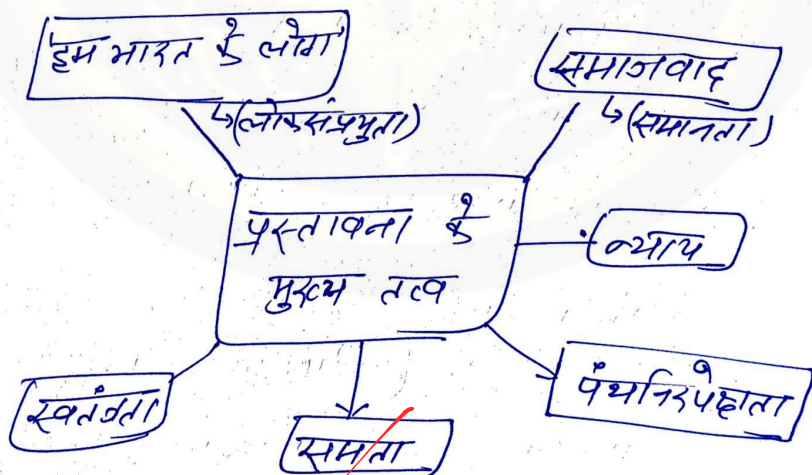 'हम भारत के लोग'
↳(लोकसंप्रभुता)
समाजवाद
↳(समानता)
प्रस्तावना के
मुख्य तत्व
न्याय
पंथनिरपेक्षता
समता
स्वतंत्रता